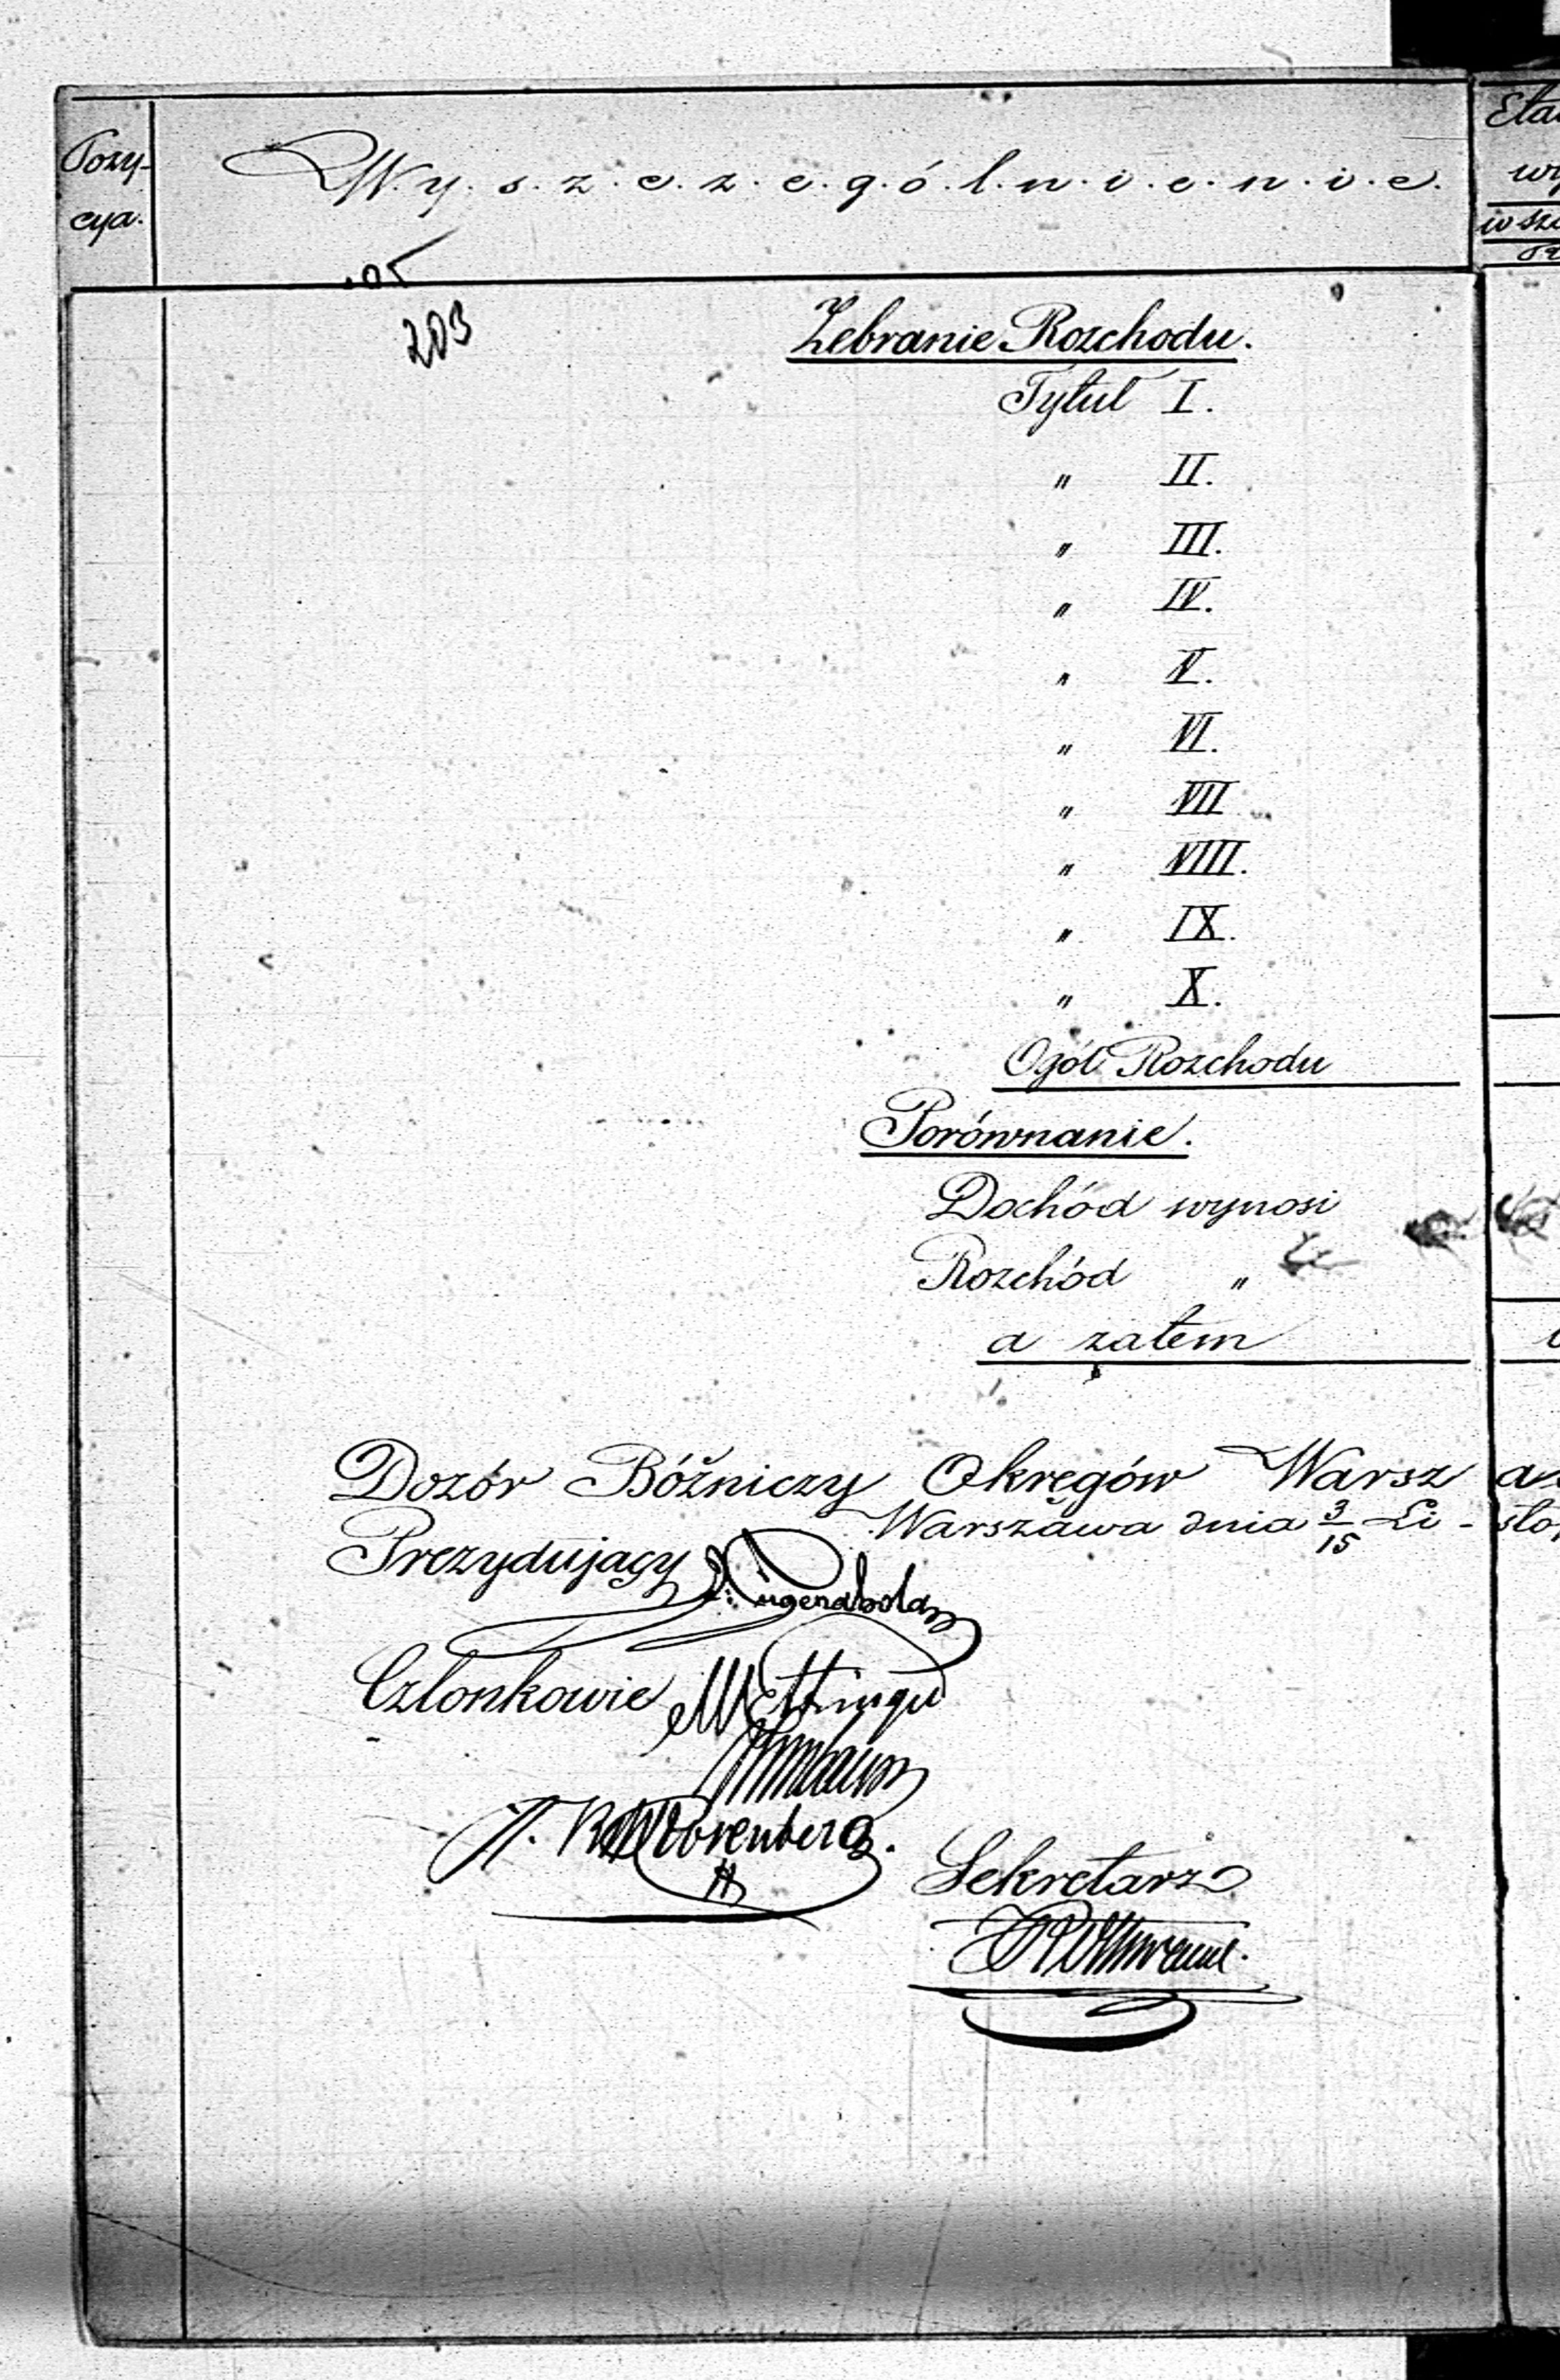 Pozy-
cya.
W.y.s.z.c.z.e.g.ó.l.n.i.e.n.i.e.
Eta
wy
w sz
203
Zebranie Rozchodu.
Tytuł I.
" II.
" III.
" IV.
" V.
" VI.
" VII
" VIII.
" IX.
" X.
Ogół Rozchodu
Porównanie.
Dochód wynosi
Rozchód "
a zatem
Dozór Bóżniczy Okręgów Warsza
Warszawa dnia 3/15 Li-sto
Prezydujący
Członkowie
Sekretarz